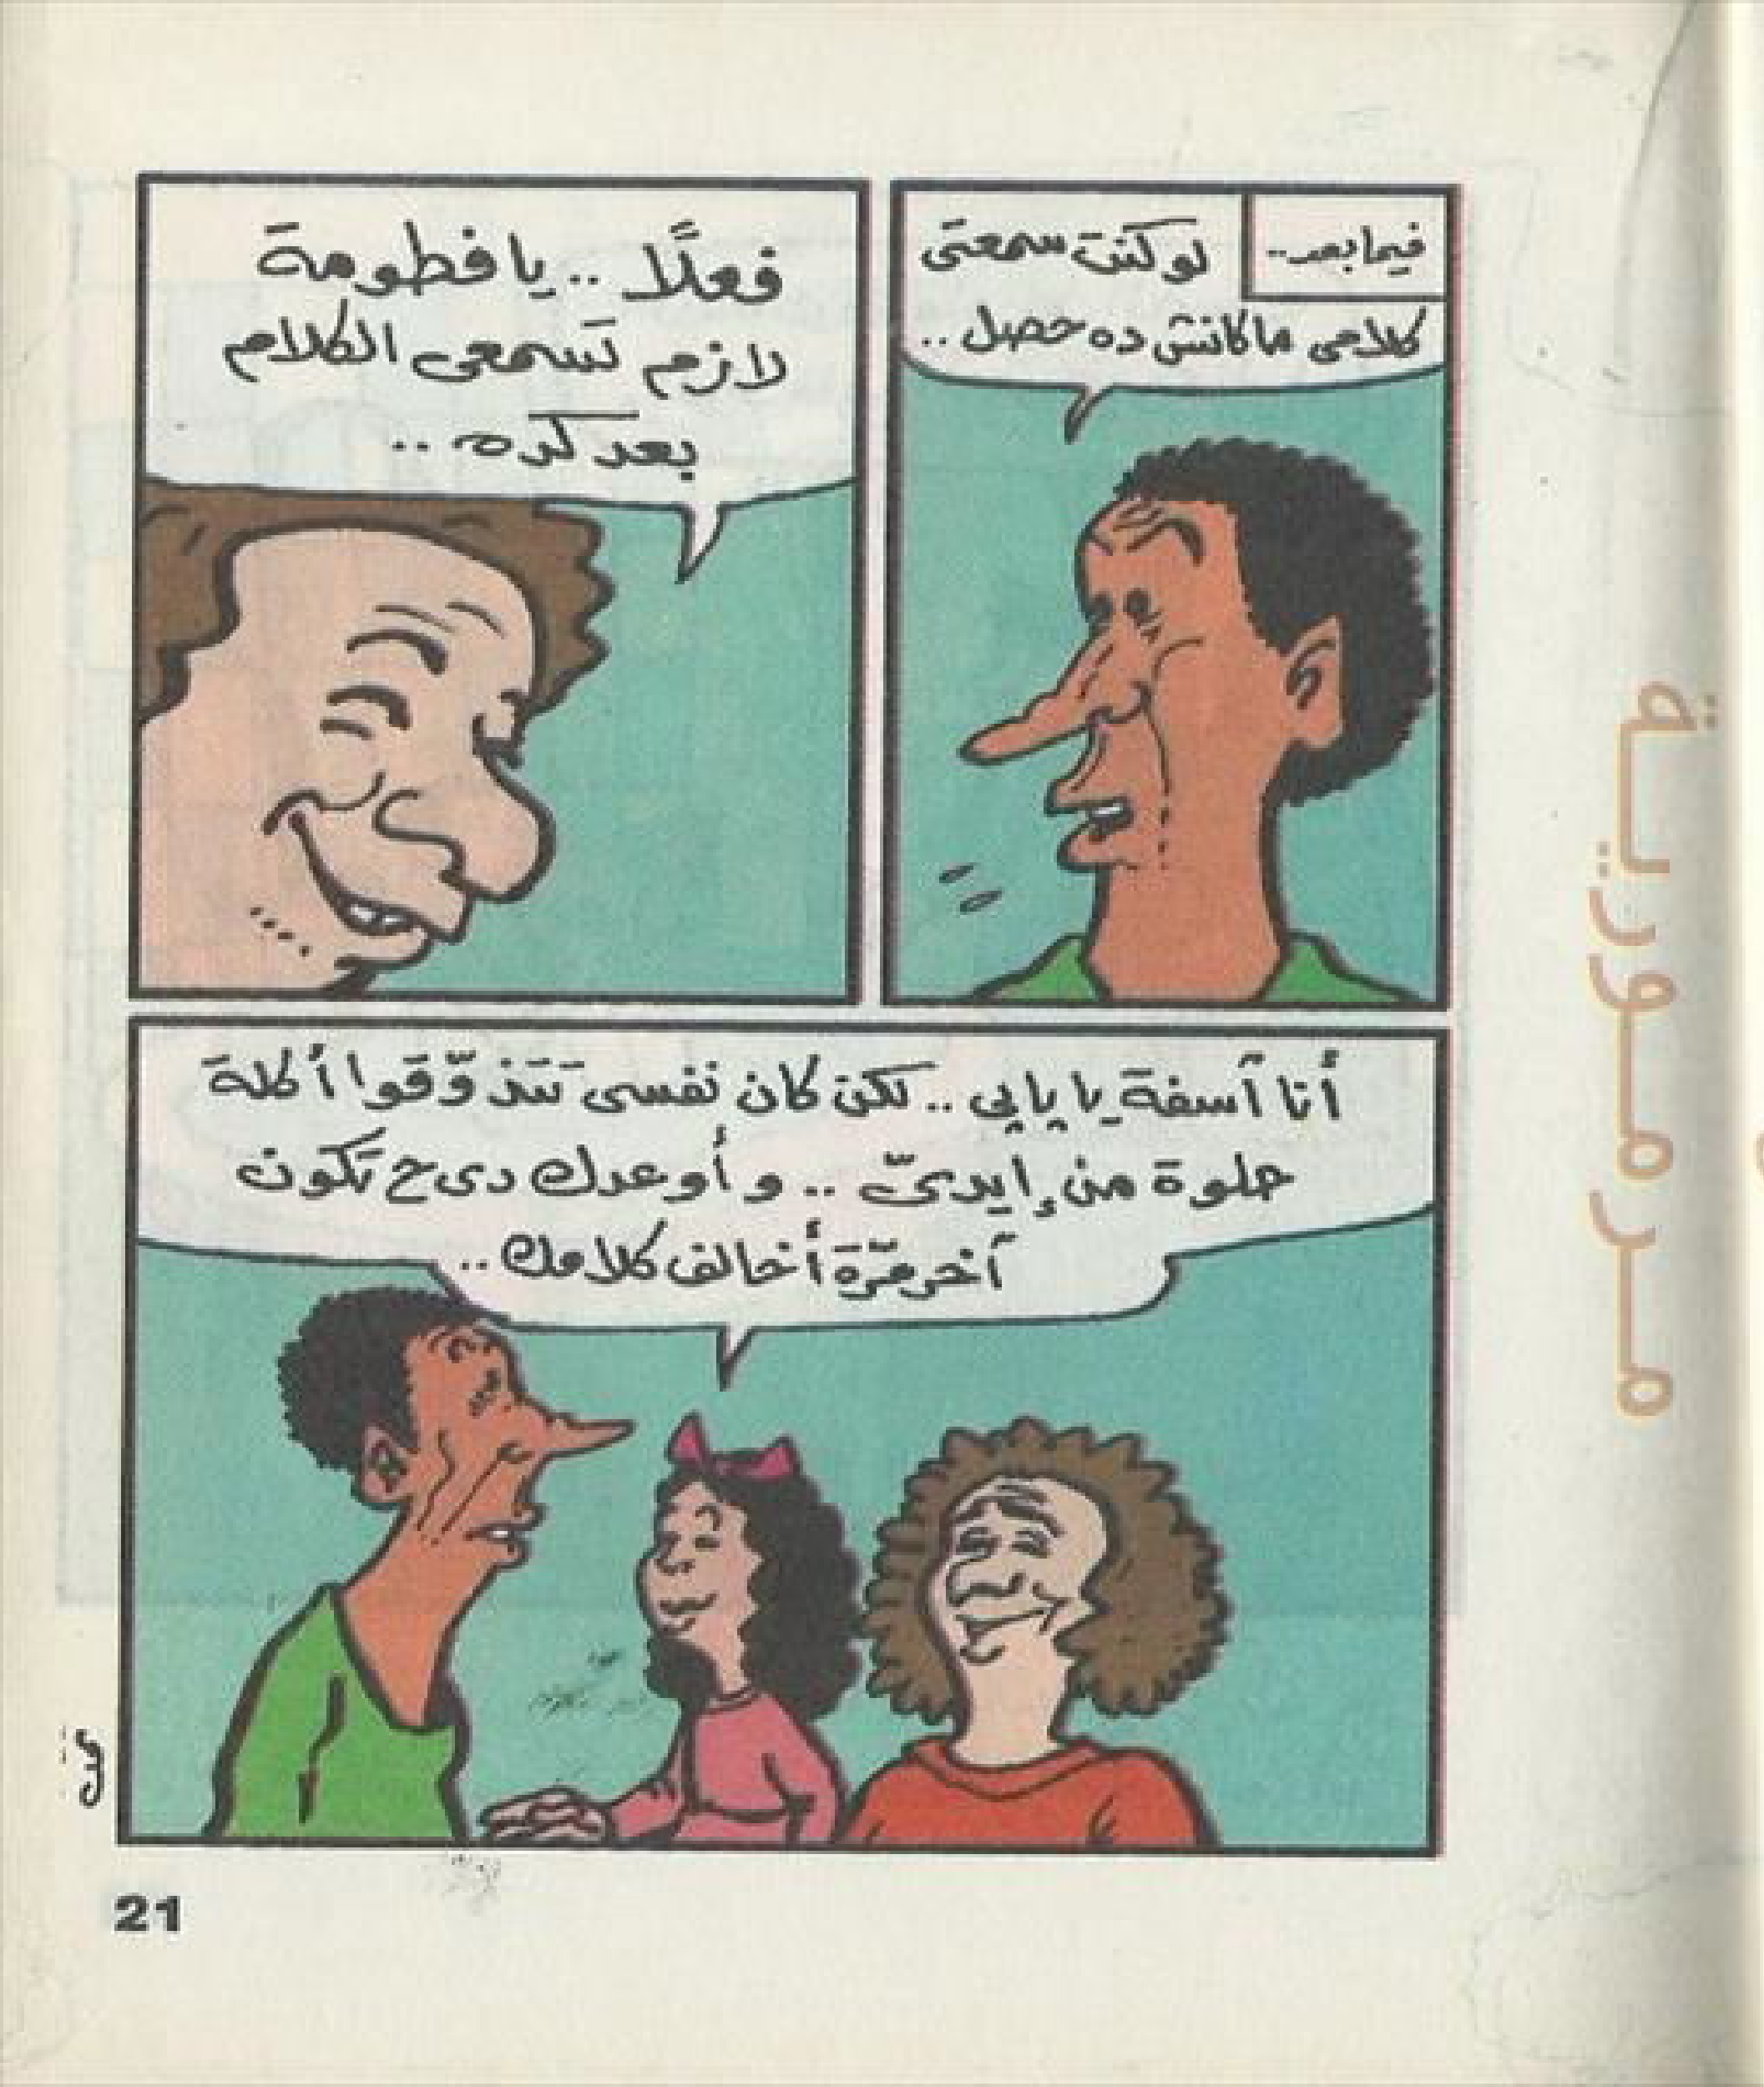 فيما بعد..
لو كنت سمعتى
كلامى ماكانش ده حصل..
فعلًا.. يا فطومة
لازم تسمعى الكلام
بعد كده..
أنا آسفة يا پاپي.. لكن كان نفسى تتذوّقوا أكلة
حلوة من إيدىّ.. و أوعدك دى ح تكون
آخر مرّة أخالف كلامك..
21
مرمورية